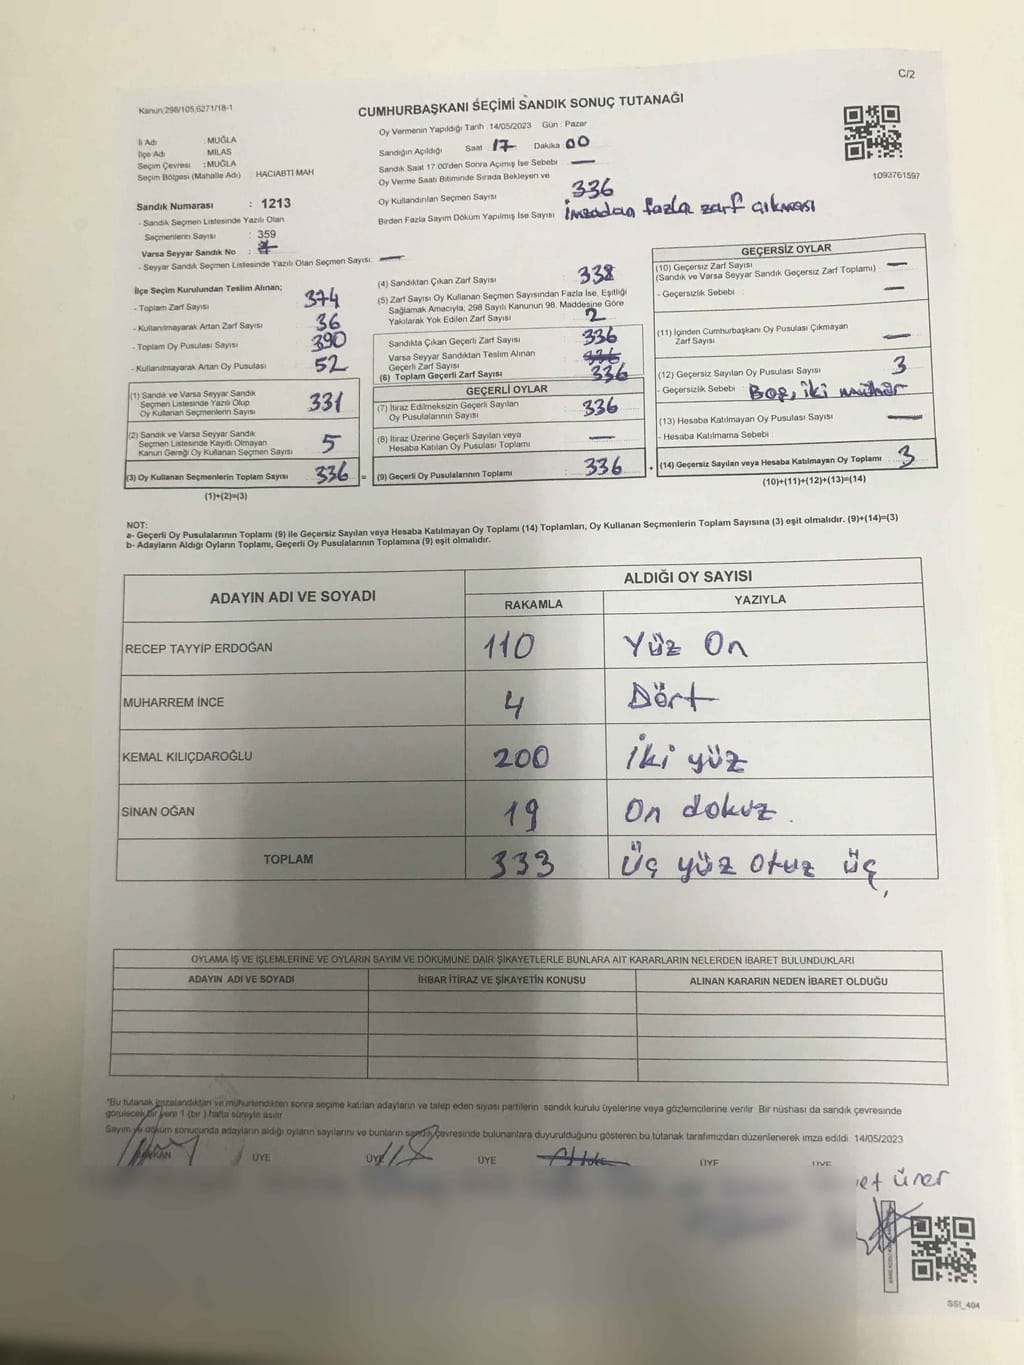 C/2
Kanun:298/105,6271/18-1
CUMHURBAŞKANI SEÇİMİ SANDIK SONUÇ TUTANAĞI
İli Adı : MUĞLA
İlçe Adı : MİLAS
Seçim Çevresi : MUĞLA
Seçim Bölgesi (Mahalle Adı) HACIABTİ MAH
Oy Vermenin Yapıldığı Tarih : 14/05/2023 Gün : Pazar
Sandığın Açıldığı Saat 17 Dakika 00
Sandık Saat 17:00'den Sonra Açılmış İse Sebebi —
Oy Verme Saati Bitiminde Sırada Bekleyen ve
Oy Kullandırılan Seçmen Sayısı : 336
Birden Fazla Sayım Döküm Yapılmış İse Sayısı imzadan fazla zarf çıkması
1093761597
Sandık Numarası : 1213
- Sandık Seçmen Listesinde Yazılı Olan
Seçmenlerin Sayısı : 359
Varsa Seyyar Sandık No :
- Seyyar Sandık Seçmen Listesinde Yazılı Olan Seçmen Sayısı: —
İlçe Seçim Kurulundan Teslim Alınan;
- Toplam Zarf Sayısı 374
- Kullanılmayarak Artan Zarf Sayısı 36
- Toplam Oy Pusulası Sayısı 390
- Kullanılmayarak Artan Oy Pusulası 52
(1) Sandık ve Varsa Seyyar Sandık
Seçmen Listesinde Yazılı Olup
Oy Kullanan Seçmenlerin Sayısı 331
(2) Sandık ve Varsa Seyyar Sandık
Seçmen Listesinde Kayıtlı Olmayan
Kanun Gereği Oy Kullanan Seçmen Sayısı 5
(3) Oy Kullanan Seçmenlerin Toplam Sayısı 336 =
(1)+(2)=(3)
(4) Sandıktan Çıkan Zarf Sayısı : 338
(5) Zarf Sayısı Oy Kullanan Seçmen Sayısından Fazla İse, Eşitliği
Sağlamak Amacıyla, 298 Sayılı Kanunun 98. Maddesine Göre
Yakılarak Yok Edilen Zarf Sayısı 2
Sandıkta Çıkan Geçerli Zarf Sayısı 336
Varsa Seyyar Sandıktan Teslim Alınan
Geçerli Zarf Sayısı 336
(6) Toplam Geçerli Zarf Sayısı 336
GEÇERLİ OYLAR
(7) İtiraz Edilmeksizin Geçerli Sayılan
Oy Pusulalarının Sayısı 336
(8) İtiraz Üzerine Geçerli Sayılan veya
Hesaba Katılan Oy Pusulası Toplamı —
(9) Geçerli Oy Pusulalarının Toplamı 336 +
GEÇERSİZ OYLAR
(10) Geçersiz Zarf Sayısı
(Sandık ve Varsa Seyyar Sandık Geçersiz Zarf Toplamı) —
- Geçersizlik Sebebi : —
(11) İçinden Cumhurbaşkanı Oy Pusulası Çıkmayan
Zarf Sayısı —
(12) Geçersiz Sayılan Oy Pusulası Sayısı 3
- Geçersizlik Sebebi : Boş, iki mühür
(13) Hesaba Katılmayan Oy Pusulası Sayısı —
- Hesaba Katılmama Sebebi
(14) Geçersiz Sayılan veya Hesaba Katılmayan Oy Toplamı 3
(10)+(11)+(12)+(13)=(14)
NOT:
a- Geçerli Oy Pusulalarının Toplamı (9) ile Geçersiz Sayılan veya Hesaba Katılmayan Oy Toplamı (14) Toplamları, Oy Kullanan Seçmenlerin Toplam Sayısına (3) eşit olmalıdır. (9)+(14)=(3)
b- Adayların Aldığı Oyların Toplamı, Geçerli Oy Pusulalarının Toplamına (9) eşit olmalıdır.
ADAYIN ADI VE SOYADI ALDIĞI OY SAYISI
RAKAMLA YAZIYLA
RECEP TAYYİP ERDOĞAN 110 Yüz On
MUHARREM İNCE 4 Dört
KEMAL KILIÇDAROĞLU 200 İki yüz
SİNAN OĞAN 19 On dokuz .
TOPLAM 333 Üç yüz Otuz üç,
OYLAMA İŞ VE İŞLEMLERİNE VE OYLARIN SAYIM VE DÖKÜMÜNE DAİR ŞİKAYETLERLE BUNLARA AİT KARARLARIN NELERDEN İBARET BULUNDUKLARI
ADAYIN ADI VE SOYADI İHBAR İTİRAZ VE ŞİKAYETİN KONUSU ALINAN KARARIN NEDEN İBARET OLDUĞU
"Bu tutanak imzalandıktan ve mühürlendikten sonra seçime katılan adayların ve talep eden siyasi partilerin sandık kurulu üyelerine veya gözlemcilerine verilir. Bir nüshası da sandık çevresinde
görülecek bir yere 1 (bir ) hafta süreyle asılır.
Sayım ve döküm sonucunda adayların aldığı oyların sayılarını ve bunların sandık çevresinde bulunanlara duyurulduğunu gösteren bu tutanak tarafımızdan düzenlenerek imza edildi. 14/05/2023
BAŞKAN ÜYE ÜYE ÜYE ÜYE ÜYE
et ürer
SSI_404